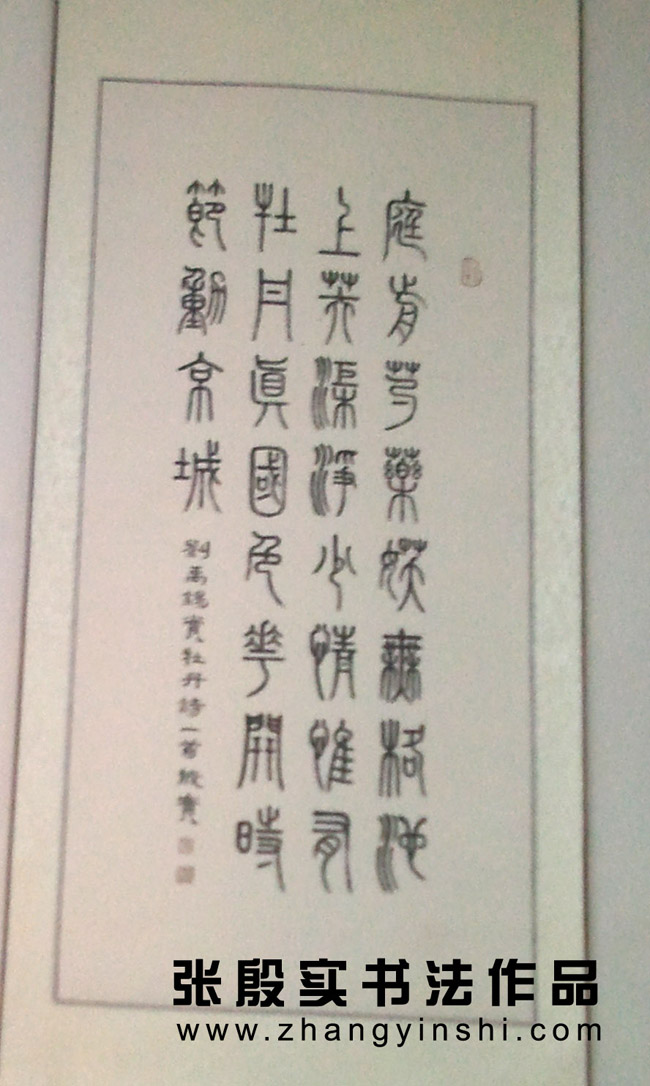 庭前芍藥妖無格池
上芙渠淨少情惟有
牡丹眞國色花開時
節動京城
劉禹錫賞牡丹詩一首殷實
张殷实书法作品
www.zhangyinshi.com